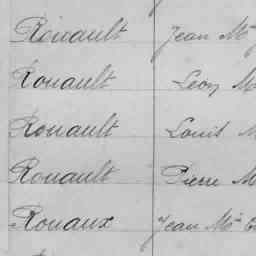 Rouault Jean Mie
Rouault Léon M
Rouault Louis M
Rouault Pierre M
Rouaux Jean Mie